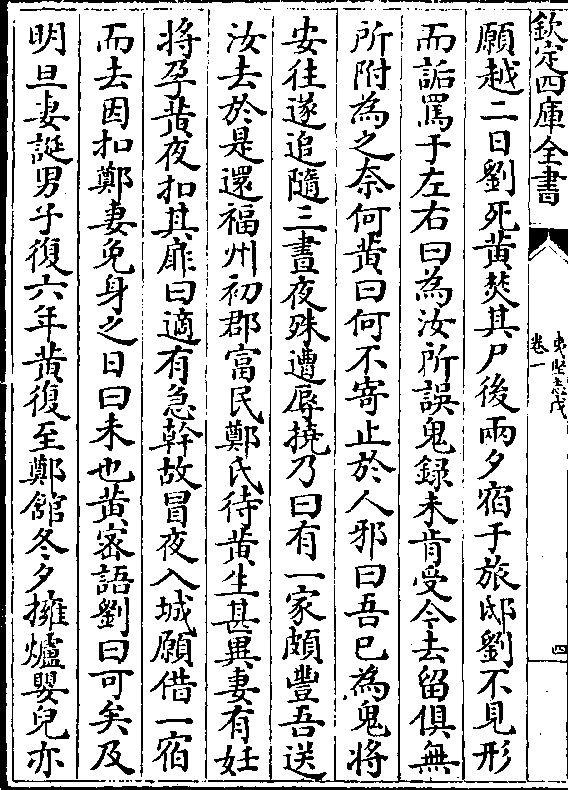 欽定四庫全書
夷堅志戊
卷一
四
願越二日劉死黃焚其尸後兩夕宿于旅邸劉不見形
而詬罵于左右曰為汝所誤鬼録未肯受今去留俱無
所附為之奈何黃曰何不寄止於人邪曰吾已為鬼將
安往遂追隨三晝夜殊遭辱撓乃曰有一家頗豐吾送
汝去於是還福州初郡富民鄭氏待黃生甚異妻有妊
將孕黃夜扣其扉曰適有急幹故冒夜入城願借一宿
而去因扣鄭妻免身之日曰未也黃密語劉曰可矣及
明旦妻誕男子復六年黃復至鄭館冬夕擁爐嬰兒亦